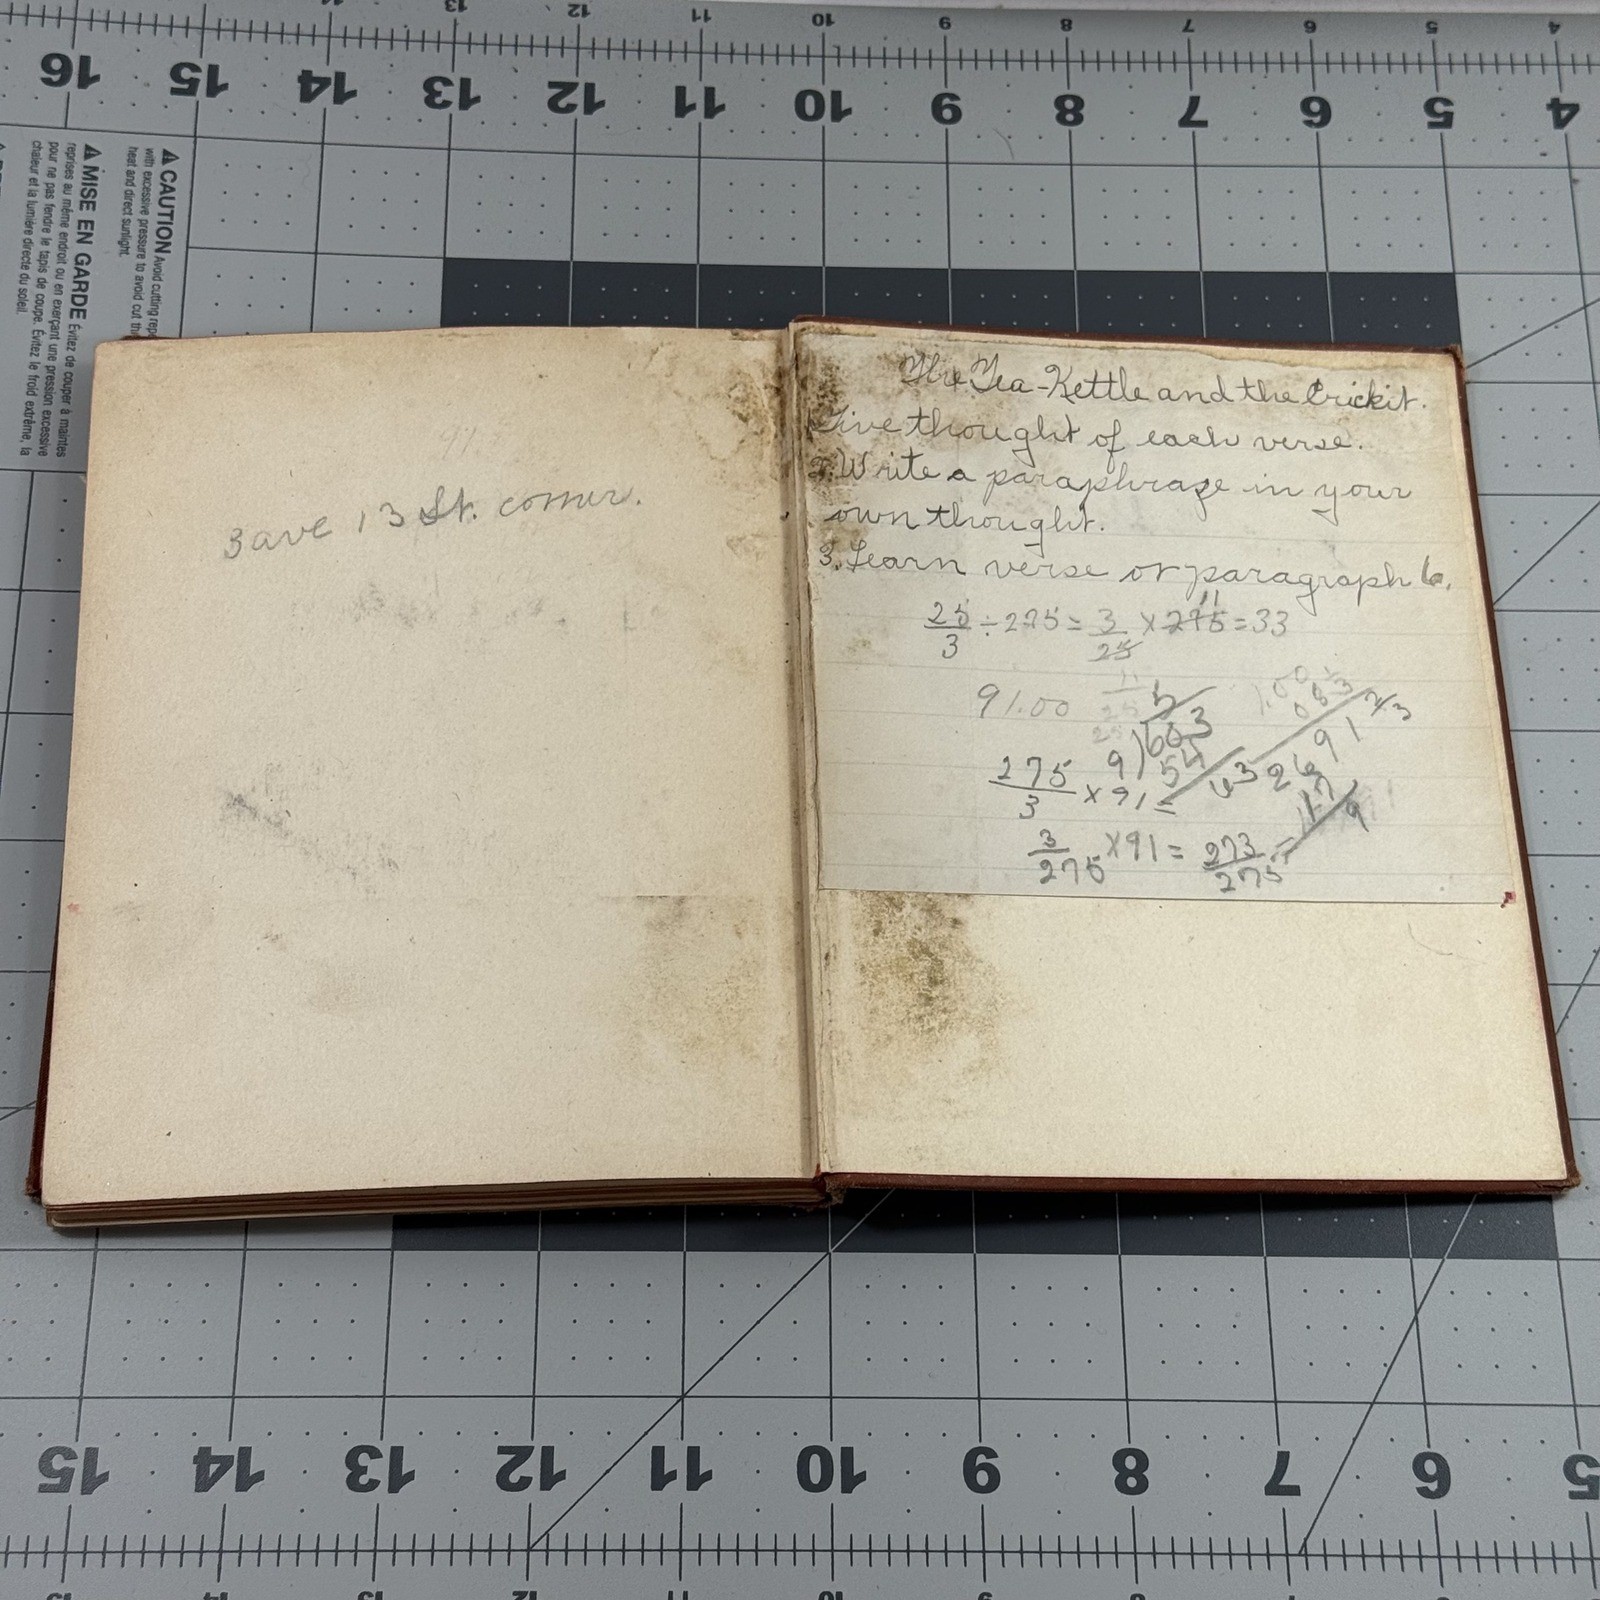 13 12 11 10 9 8 7 6 5 4
16 15 14 13 12 11 10 9 8 7 6 5 4
⚠ CAUTION Avoid cutting
with excessive pressure to avoid cut
heat and direct sunlight.
⚠ MISE EN GARDE Évitez de couper à maintes
reprises au même endroit ou en exerçant une pression excessive
pour ne pas fendre le tapis de coupe. Évitez le froid extrême, la
chaleur et la lumière directe du soleil.
91
3 ave 13 St. corner.
The Tea-Kettle and the Crickit.
1. Give thought of each verse.
2. Write a paraphraze in your
own thought.
3. Learn verse or paragraph 6.
11
25/3 ÷ 275 = 3/25 × 275 = 33
91.00
1.00
08 1/3
91 2/3
9)603
54
63
275/3 × 91 =
3/275 × 91 = 273/275 =
15 14 13 12 11 10 9 8 7 6 5